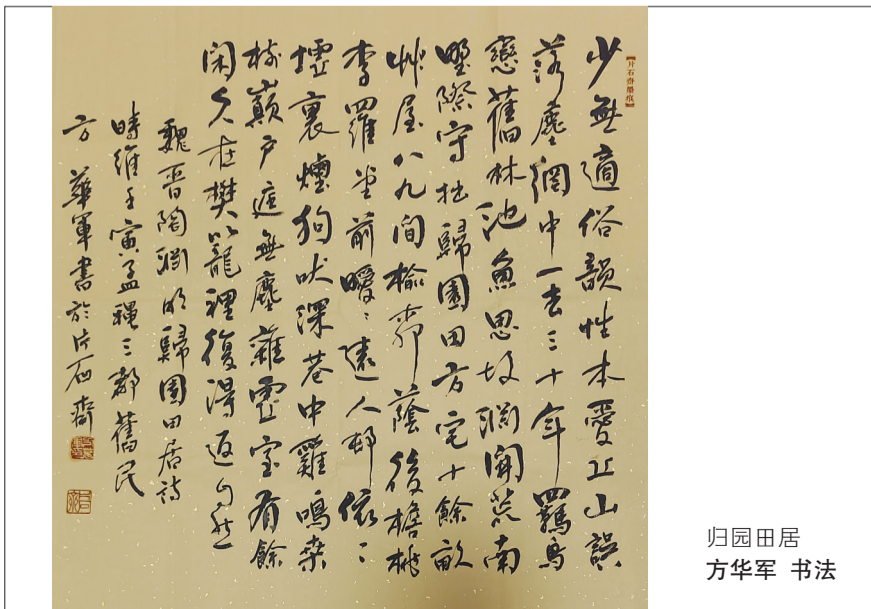 【片石齋墨痕】
少無適俗韻性本愛丘山誤
落塵網中一去三十年羈鳥
戀舊林池魚思故淵開荒南
野際守拙歸園田方宅十餘畝
艸屋八九間榆柳蔭後檐桃
李羅堂前曖〻遠人邨依〻
墟裏煙狗吠深巷中雞鳴桑
樹巔戶庭無塵雜虛室有餘
閑久在樊籠裡復得返自然
魏晋陶淵明歸園田居詩
時維壬寅孟穐三都舊民
方華軍書於片石齋
归园田居
方华军 书法